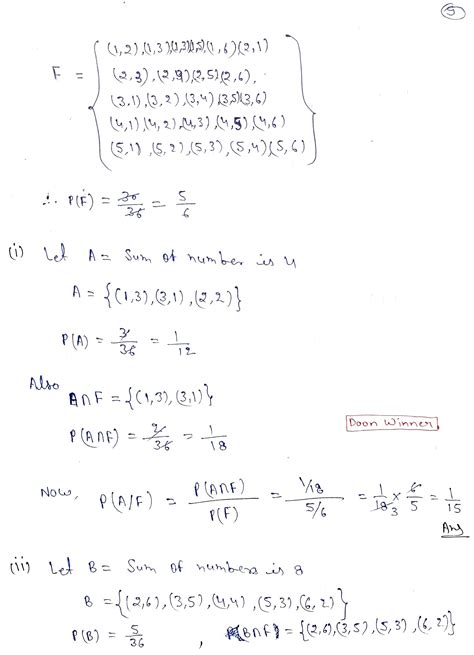 5
(1,2),(1,3),(1,4),(1,5),(1,6)(2,1)
F = (2,3),(2,4),(2,5)(2,6),
(3,1),(3,2),(3,4),(3,5)(3,6)
(4,1),(4,2),(4,3),(4,5),(4,6)
(5,1),(5,2),(5,3),(5,4)(5,6)
∴ P(F) = 30/36 = 5/6
(i) Let A = Sum of number is 4
A = {(1,3),(3,1),(2,2)}
P(A) = 3/36 = 1/12
Also
A∩F = {(1,3),(3,1)}
Doon Winner
P(A∩F) = 2/36 = 1/18
Now, P(A/F) = P(A∩F)/P(F) = 1/18 / 5/6 = 1/18 3 × 6/5 = 1/15
Ans
(ii) Let B = Sum of numbers is 8
B = {(2,6),(3,5),(4,4),(5,3),(6,2)}
P(B) = 5/36 , (B∩F) = {(2,6),(3,5),(5,3),(6,2)}